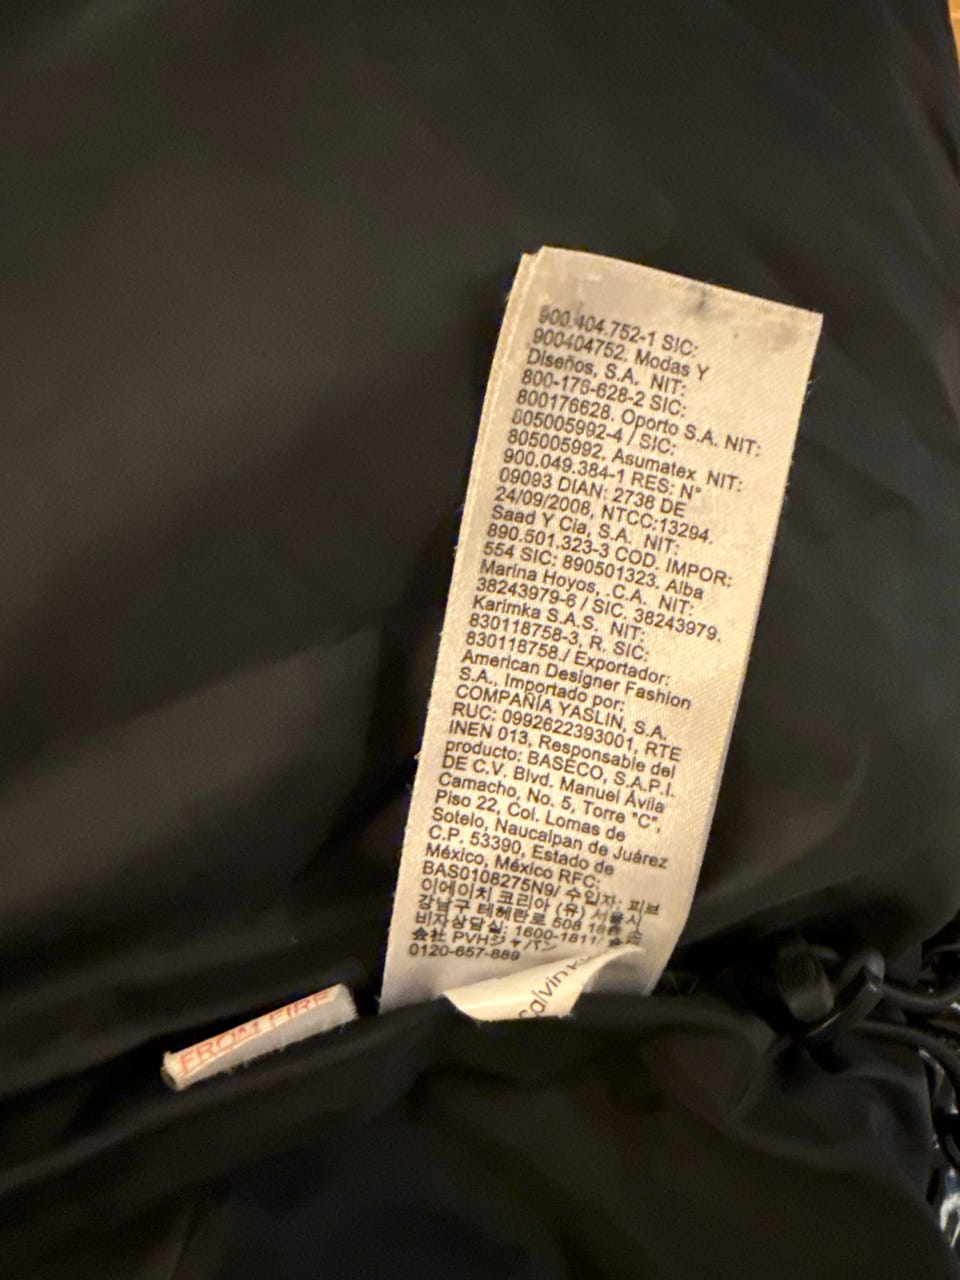 900.404.752-1 SIC:
900404752. Modas Y
Diseños, S.A. NIT:
800-176-628-2 SIC:
800176628. Oporto S.A. NIT:
805005992-4 / SIC:
805005992. Asumatex NIT:
900.049.384-1 RES: N°
09093 DIAN: 2738 DE
24/09/2008, NTCC:13294.
Saad Y Cia, S.A. NIT:
890.501.323-3 COD. IMPOR:
554 SIC: 890501323. Alba
Marina Hoyos, .C.A. NIT:
38243979-6 / SIC. 38243979.
Karimka S.A.S. NIT:
830118758-3, R. SIC:
830118758./ Exportador:
American Designer Fashion
S.A., Importado por:
COMPAÑÍA YASLIN, S.A.
RUC: 0992622393001, RTE
INEN 013, Responsable del
producto: BASECO, S.A.P.I.
DE C.V. Blvd. Manuel Ávila
Camacho, No. 5, Torre "C",
Piso 22, Col. Lomas de
Sotelo, Naucalpan de Juárez
C.P. 53390, Estado de
México, México RFC:
BAS0108275N9/ 수입자: 피브
이에이치 코리아 (유) 서울시
강남구 테헤란로 508
비자상담실: 1600-1811/
会社 PVHジャパン
0120-657-889
Calvin
FROM FIRE